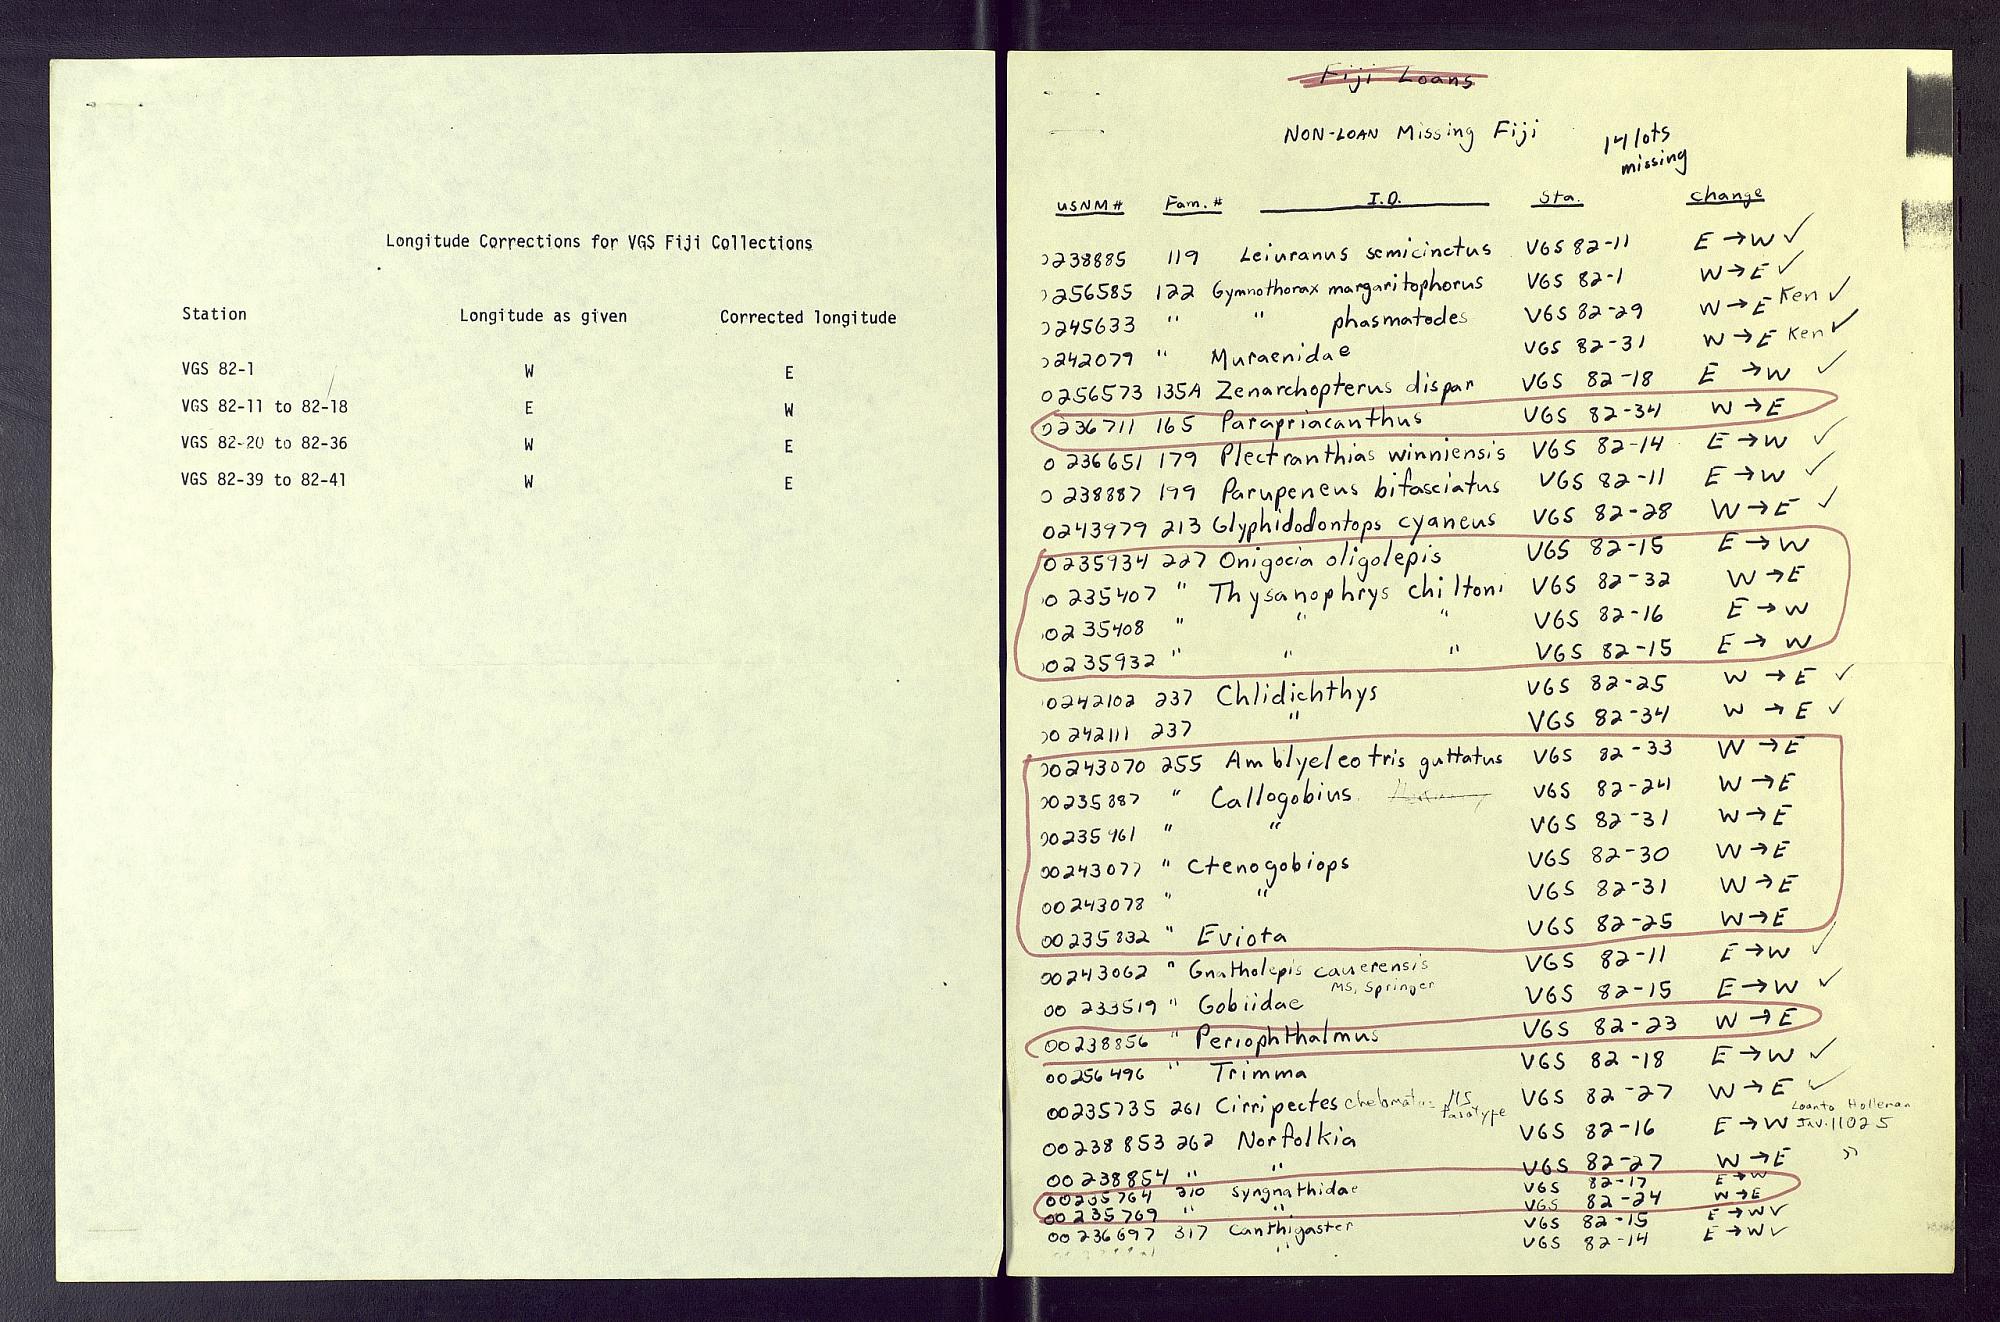 Longitude Corrections for VGS Fiji Collections
Station Longitude as given Corrected longitude
VGS 82-1 W E
VGS 82-11 to 82-18 E W
VGS 82-20 to 82-36 W E
VGS 82-39 to 82-41 W E
Fiji Loans
NON-LOAN Missing Fiji
14 lots
missing
USNM# Fam.# I.D. Sta. Change
0238885 119 Leiuranus semicinctus VGS 82-11 E→W ✓
0256585 122 Gymnothorax margaritophorus VGS 82-1 W→E ✓
0245633 " " phasmatodes VGS 82-29 W→E Ken ✓
0242079 " Muraenidae VGS 82-31 W→E Ken ✓
0256573 135A Zenarchopterus dispar VGS 82-18 E→W ✓
0236711 165 Parapriacanthus VGS 82-34 W→E
0236651 179 Plectranthias winniensis VGS 82-14 E→W ✓
0238887 199 Parupeneus bifasciatus VGS 82-11 E→W ✓
0243979 213 Glyphidodontops cyaneus VGS 82-28 W→E ✓
0235934 227 Onigocia oligolepis VGS 82-15 E→W
0235407 " Thysanophrys chiltoni VGS 82-32 W→E
0235408 " " " VGS 82-16 E→W
0235932 " " " VGS 82-15 E→W
0242102 237 Chlidichthys VGS 82-25 W→E ✓
00242111 237 " VGS 82-34 W→E ✓
00243070 255 Amblyeleotris guttatus VGS 82-33 W→E
00235887 " Callogobius VGS 82-24 W→E
00235961 " " VGS 82-31 W→E
00243077 " Ctenogobiops VGS 82-30 W→E
00243078 " " VGS 82-31 W→E
00235832 " Eviota VGS 82-25 W→E
00243062 " Gnatholepis cauerensis VGS 82-11 E→W ✓
MS, Springer
00233519 " Gobiidae VGS 82-15 E→W ✓
00238856 " Periophthalmus VGS 82-23 W→E
00256496 " Trimma VGS 82-18 E→W ✓
00235735 261 Cirripectes MS VGS 82-27 W→E ✓
Paratype
Loan to Holleman
00238853 262 Norfolkia VGS 82-16 E→W Inv. 11025
00238854 " " VGS 82-27 W→E "
00235764 310 Syngnathidae VGS 82-17 E→W
00235769 " " VGS 82-24 W→E
00236697 317 Canthigaster VGS 82-15 E→W ✓
" VGS 82-14 E→W ✓